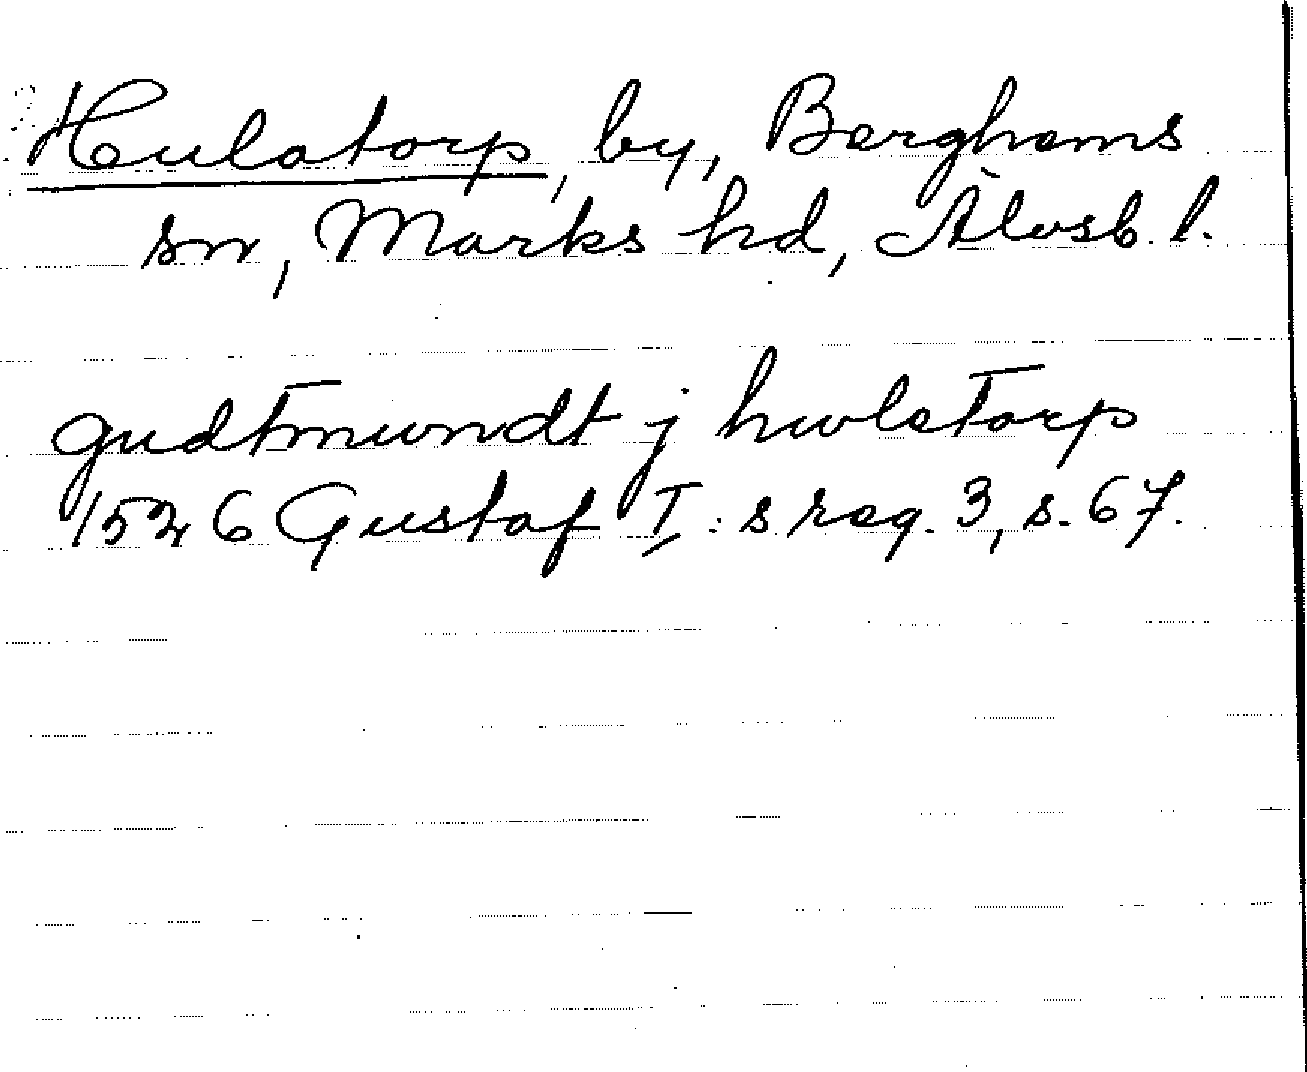 Hulatorp, by, Berghems
sn, Marks hd, Älvsb. l.
gudtmundt j hwletorp
1526 Gustaf I:s reg. 3, s. 67.